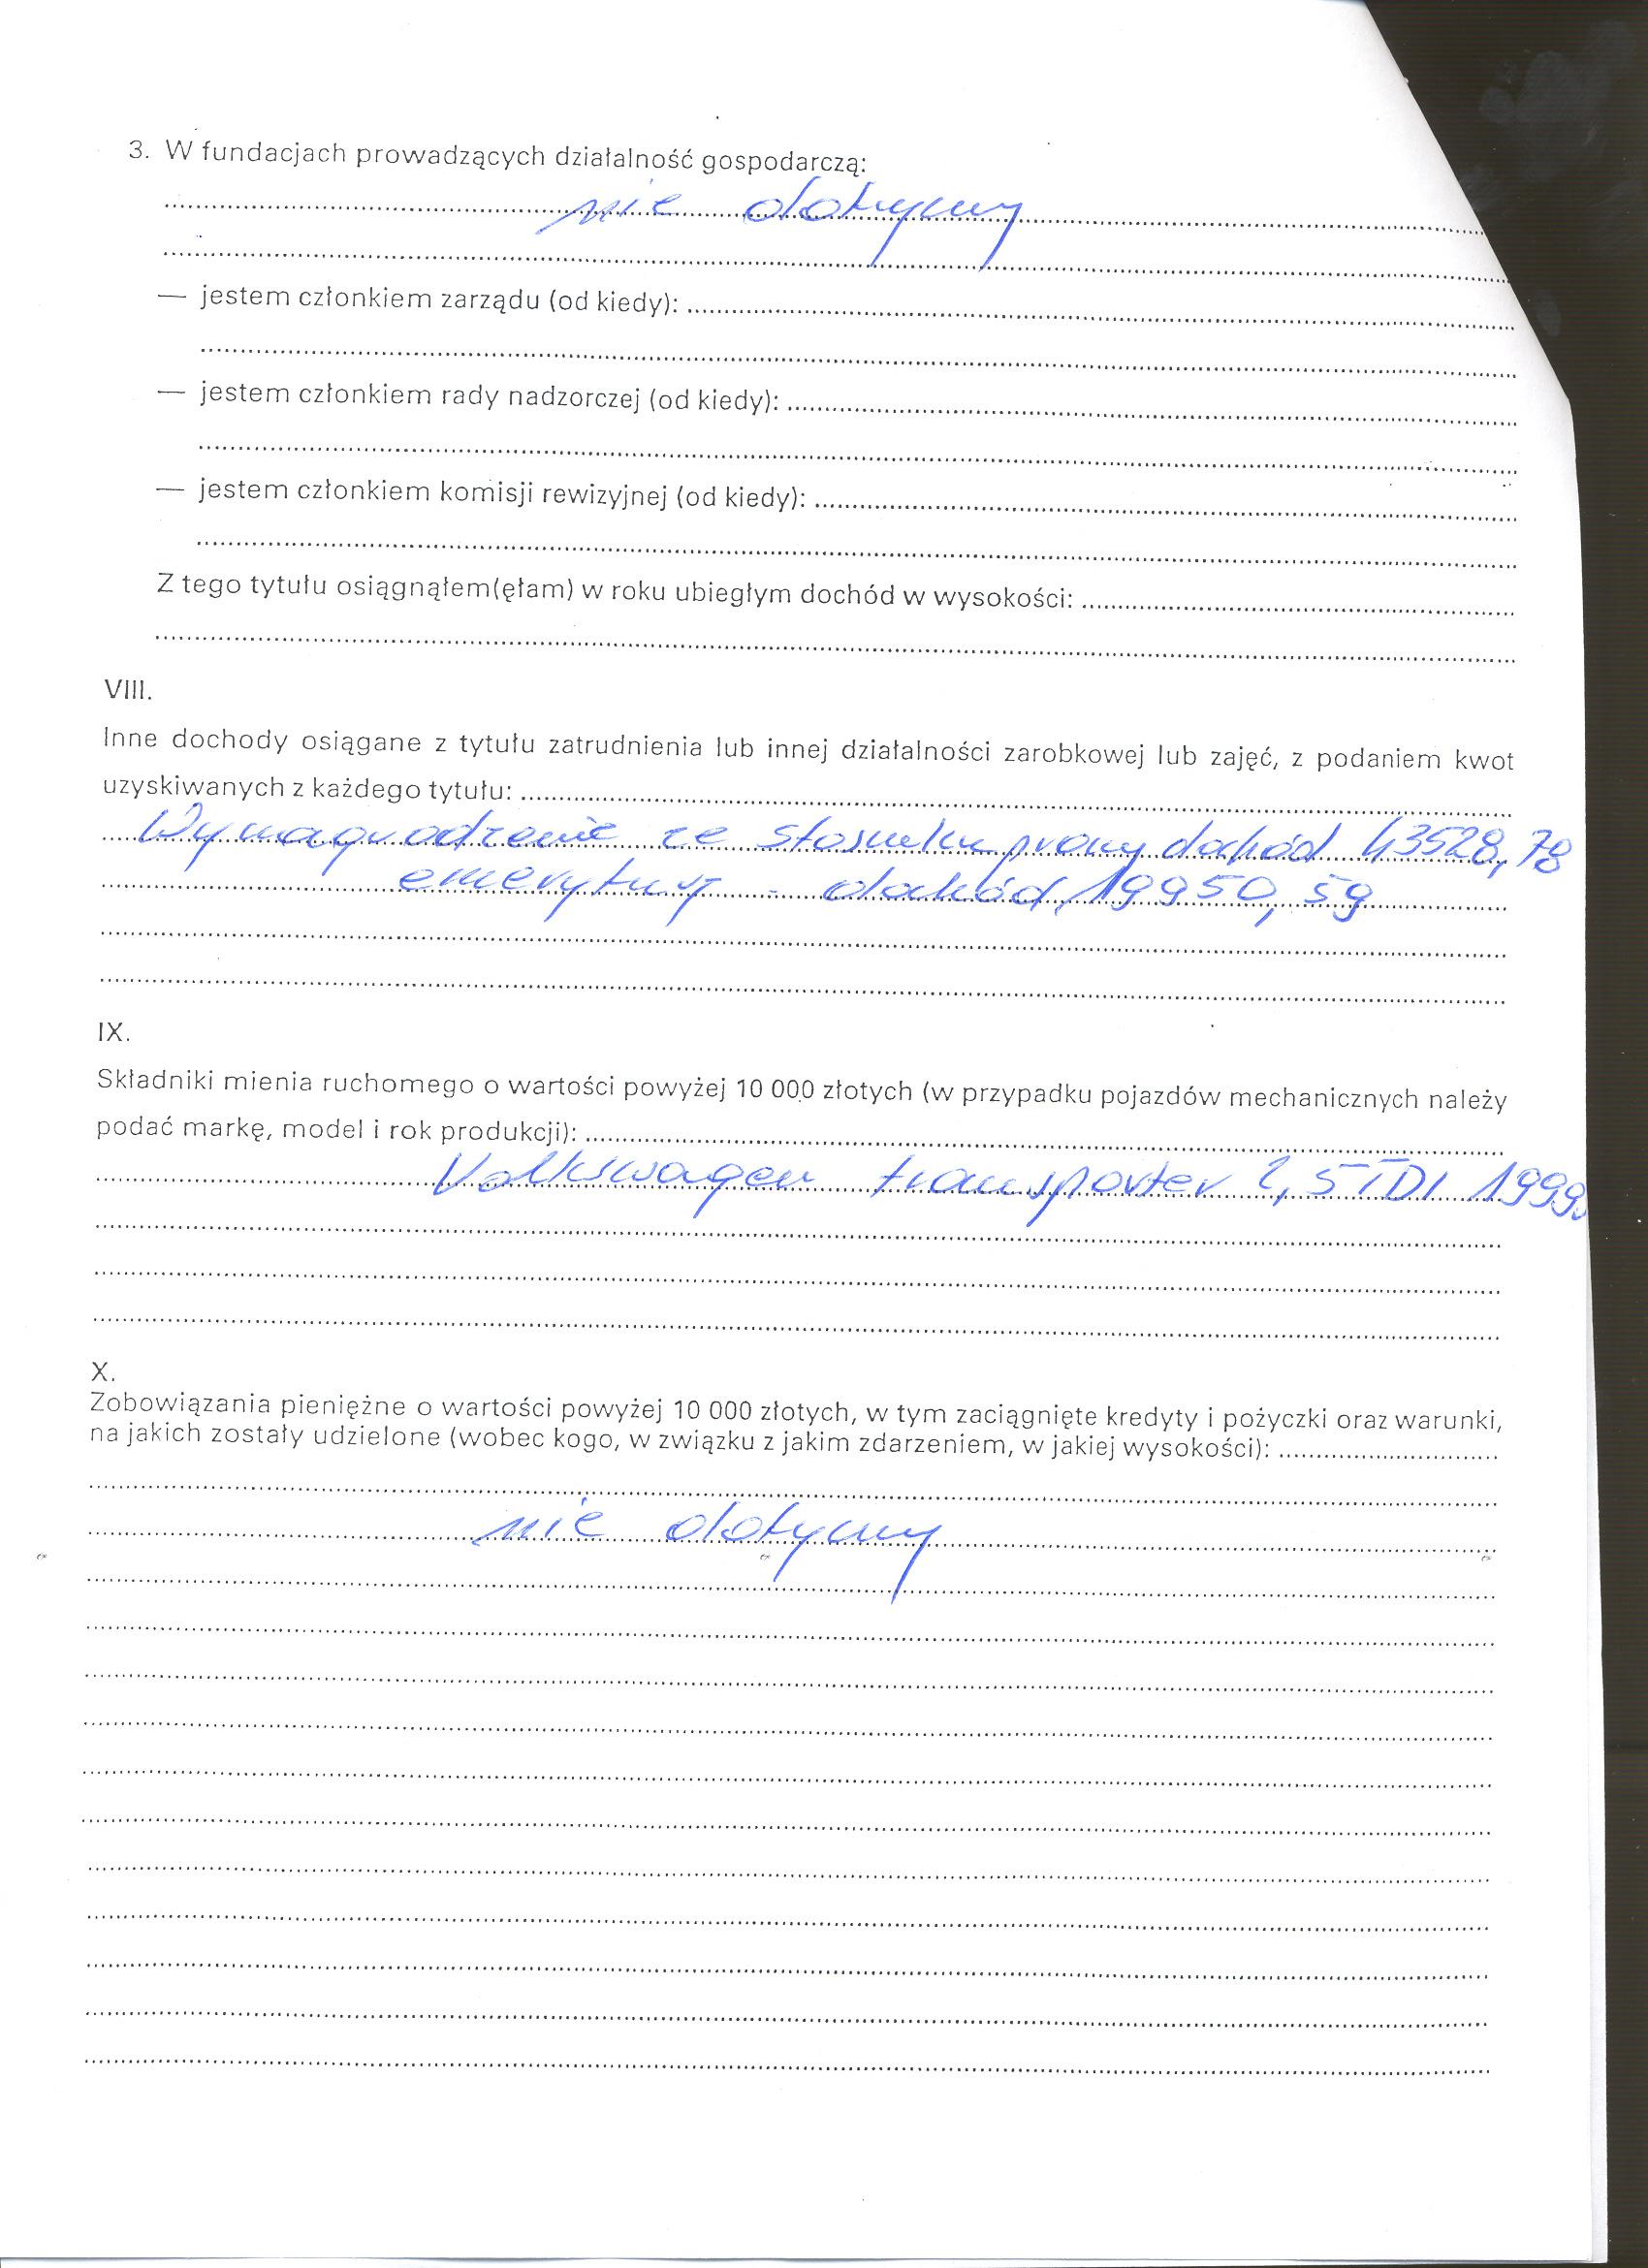 3. W fundacjach prowadzących działalność gospodarczą:
nie dotyczy
— jestem członkiem zarządu (od kiedy):
— jestem członkiem rady nadzorczej (od kiedy):
— jestem członkiem komisji rewizyjnej (od kiedy):
Z tego tytułu osiągnąłem(ęłam) w roku ubiegłym dochód w wysokości:
VIII.
Inne dochody osiągane z tytułu zatrudnienia lub innej działalności zarobkowej lub zajęć, z podaniem kwot
uzyskiwanych z każdego tytułu:
Wynagrodzenie ze stosunku pracy dochód 43528,78
emerytury - dochód 19950,59
IX.
Składniki mienia ruchomego o wartości powyżej 10 000 złotych (w przypadku pojazdów mechanicznych należy
podać markę, model i rok produkcji):
Volkswagen transporter 2,5 TDI 1999
X.
Zobowiązania pieniężne o wartości powyżej 10 000 złotych, w tym zaciągnięte kredyty i pożyczki oraz warunki,
na jakich zostały udzielone (wobec kogo, w związku z jakim zdarzeniem, w jakiej wysokości):
nie dotyczy